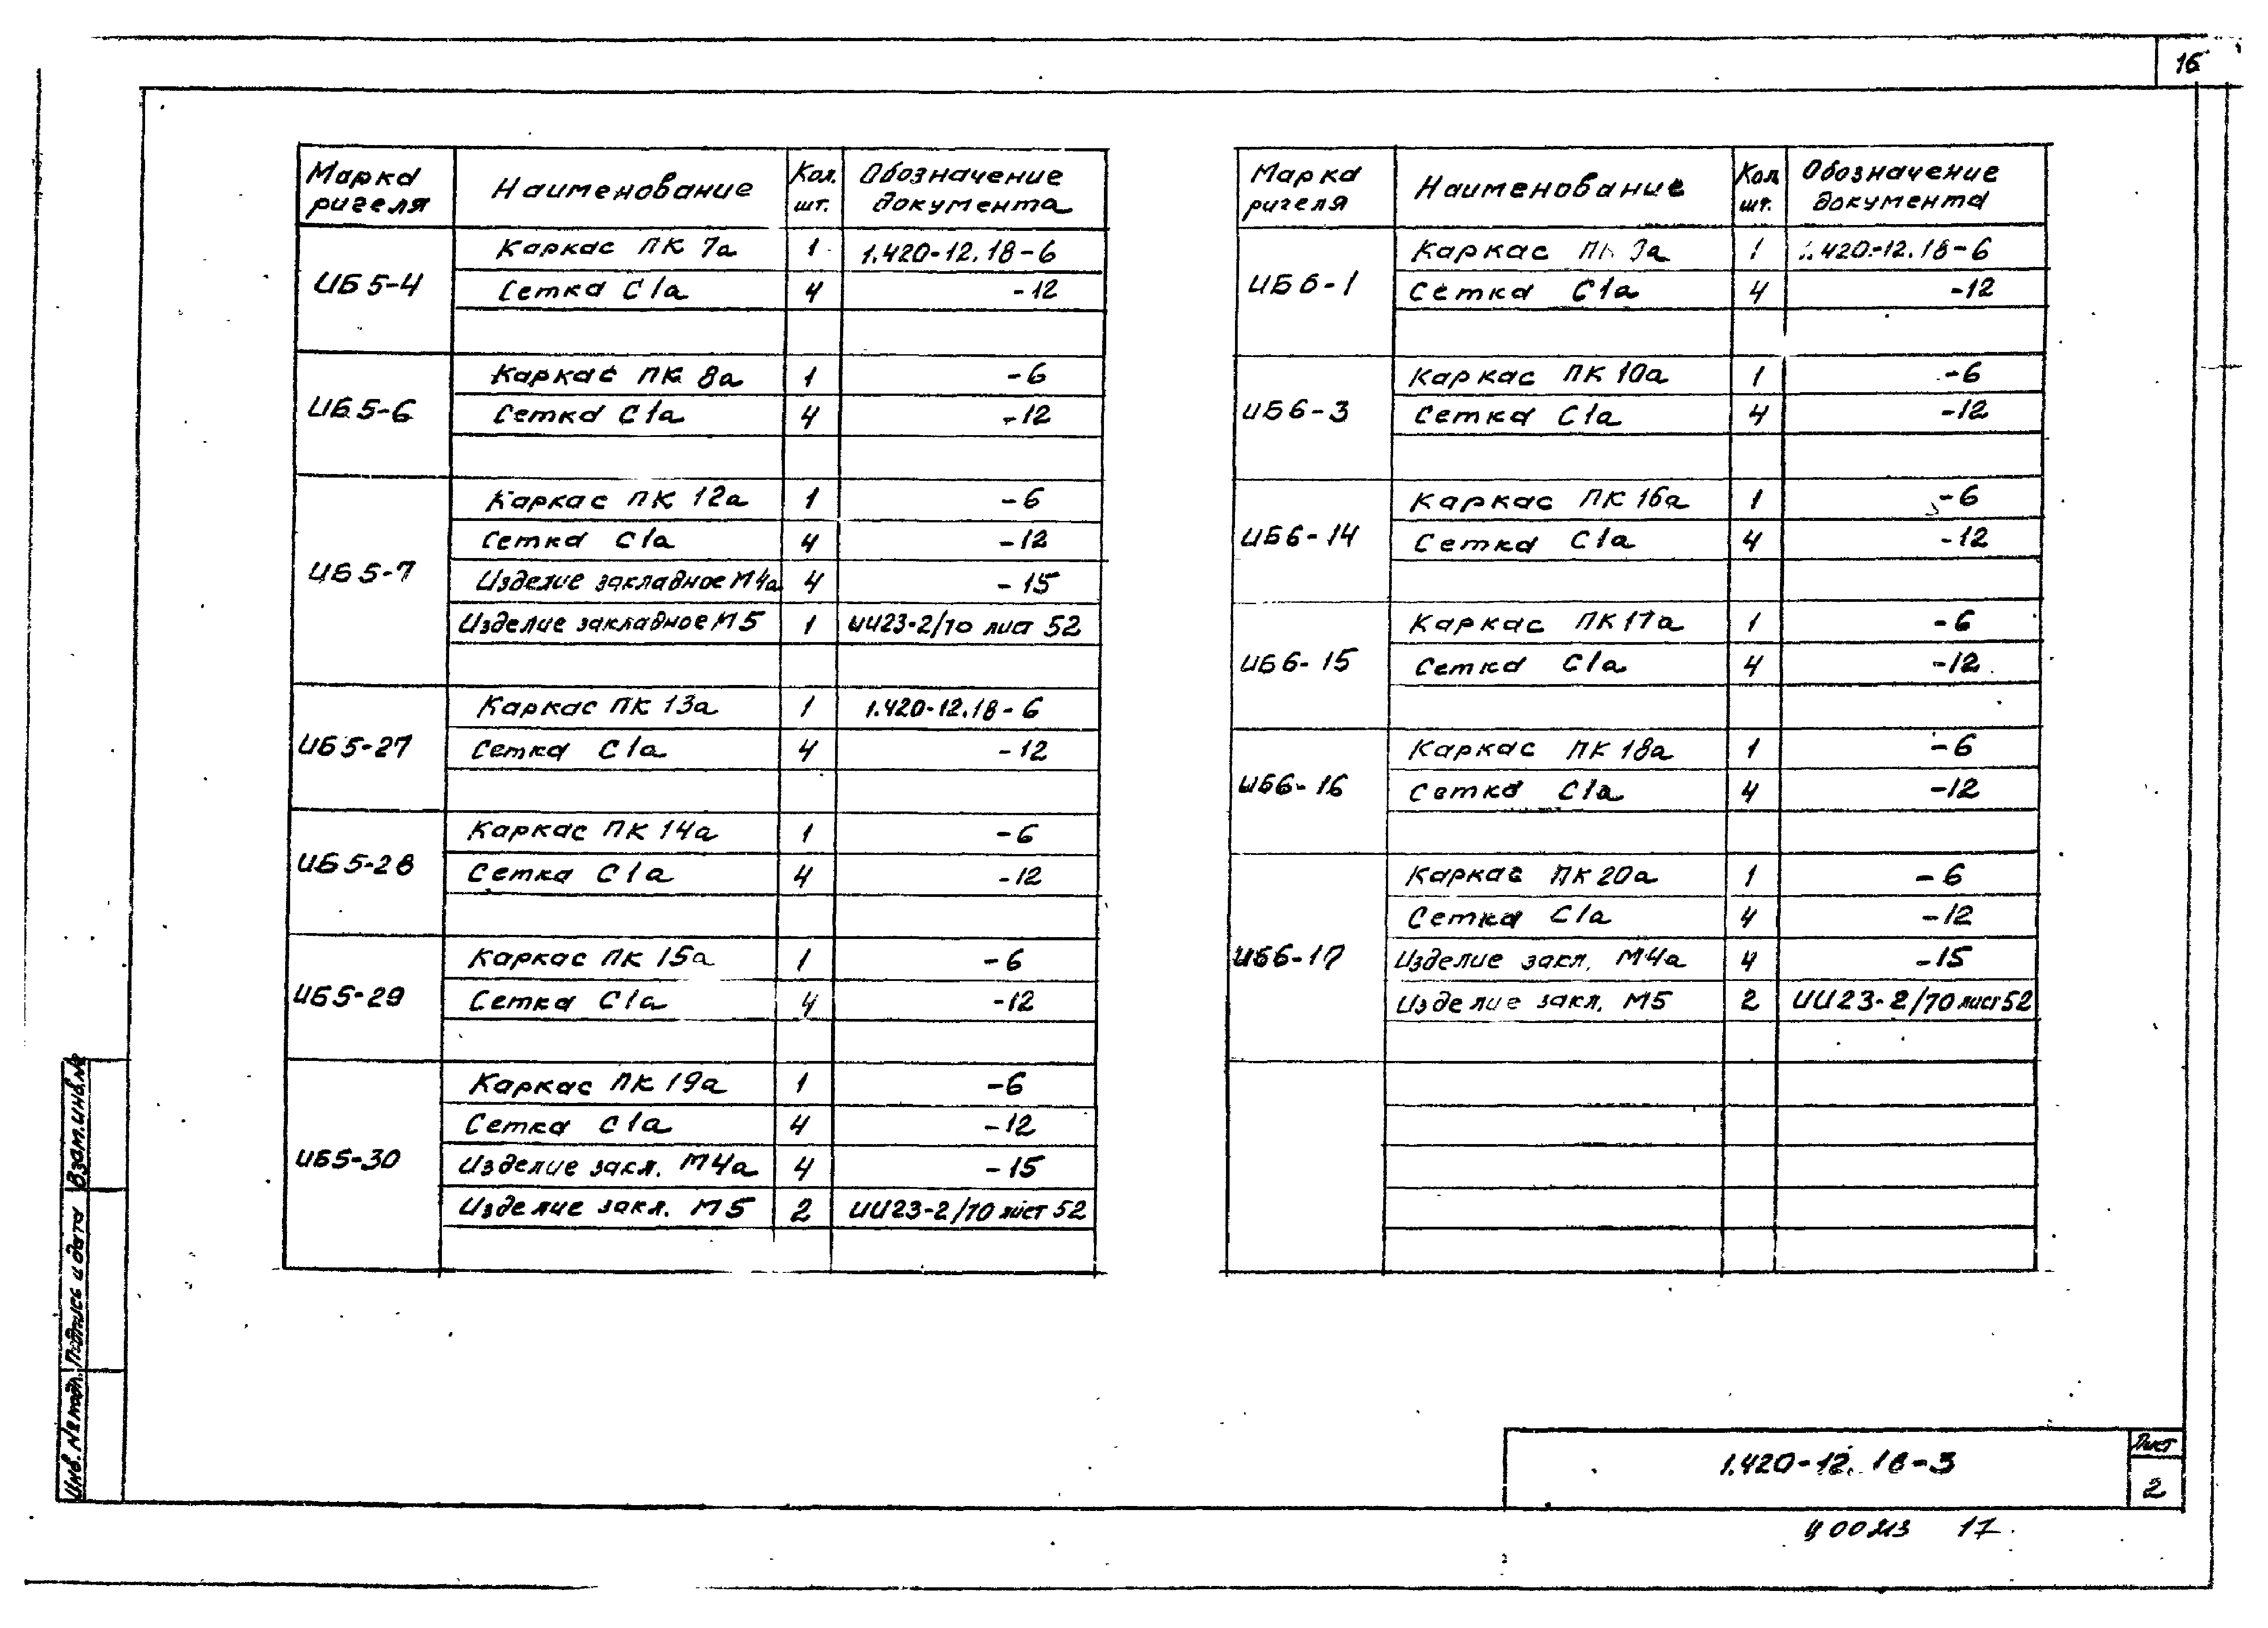 16
Марка ригеля Наименование Кол. шт. Обозначение документа
ИБ5-4 Каркас ПК 7а 1 1.420-12.18-6
Сетка С1а 4 -12
ИБ5-6 Каркас ПК 8а 1 -6
Сетка С1а 4 -12
ИБ5-7 Каркас ПК 12а 1 -6
Сетка С1а 4 -12
Изделие закладное М4а 4 -15
Изделие закладное М5 1 ИИ23-2/70 лист 52
ИБ5-27 Каркас ПК 13а 1 1.420-12.18-6
Сетка С1а 4 -12
ИБ5-28 Каркас ПК 14а 1 -6
Сетка С1а 4 -12
ИБ5-29 Каркас ПК 15а 1 -6
Сетка С1а 4 -12
ИБ5-30 Каркас ПК 19а 1 -6
Сетка С1а 4 -12
Изделие закл. М4а 4 -15
Изделие закл. М5 2 ИИ23-2/70 лист 52
Марка ригеля Наименование Кол. шт. Обозначение документа
ИБ6-1 Каркас ПК 1 1.420-12.18-6
Сетка С1а 4 -12
ИБ6-3 Каркас ПК 10а 1 -6
Сетка С1а 4 -12
ИБ6-14 Каркас ПК 16а 1 -6
Сетка С1а 4 -12
ИБ6-15 Каркас ПК 17а 1 -6
Сетка С1а 4 -12
ИБ6-16 Каркас ПК 18а 1 -6
Сетка С1а 4 -12
ИБ6-17 Каркас ПК 20а 1 -6
Сетка С1а 4 -12
Изделие закл. М4а 4 -15
Изделие закл. М5 2 ИИ23-2/70 лист 52
Взам.инв.№
Подпись и дата
Инв.№ подл.
1.420-12.18-3
Лист
2
17